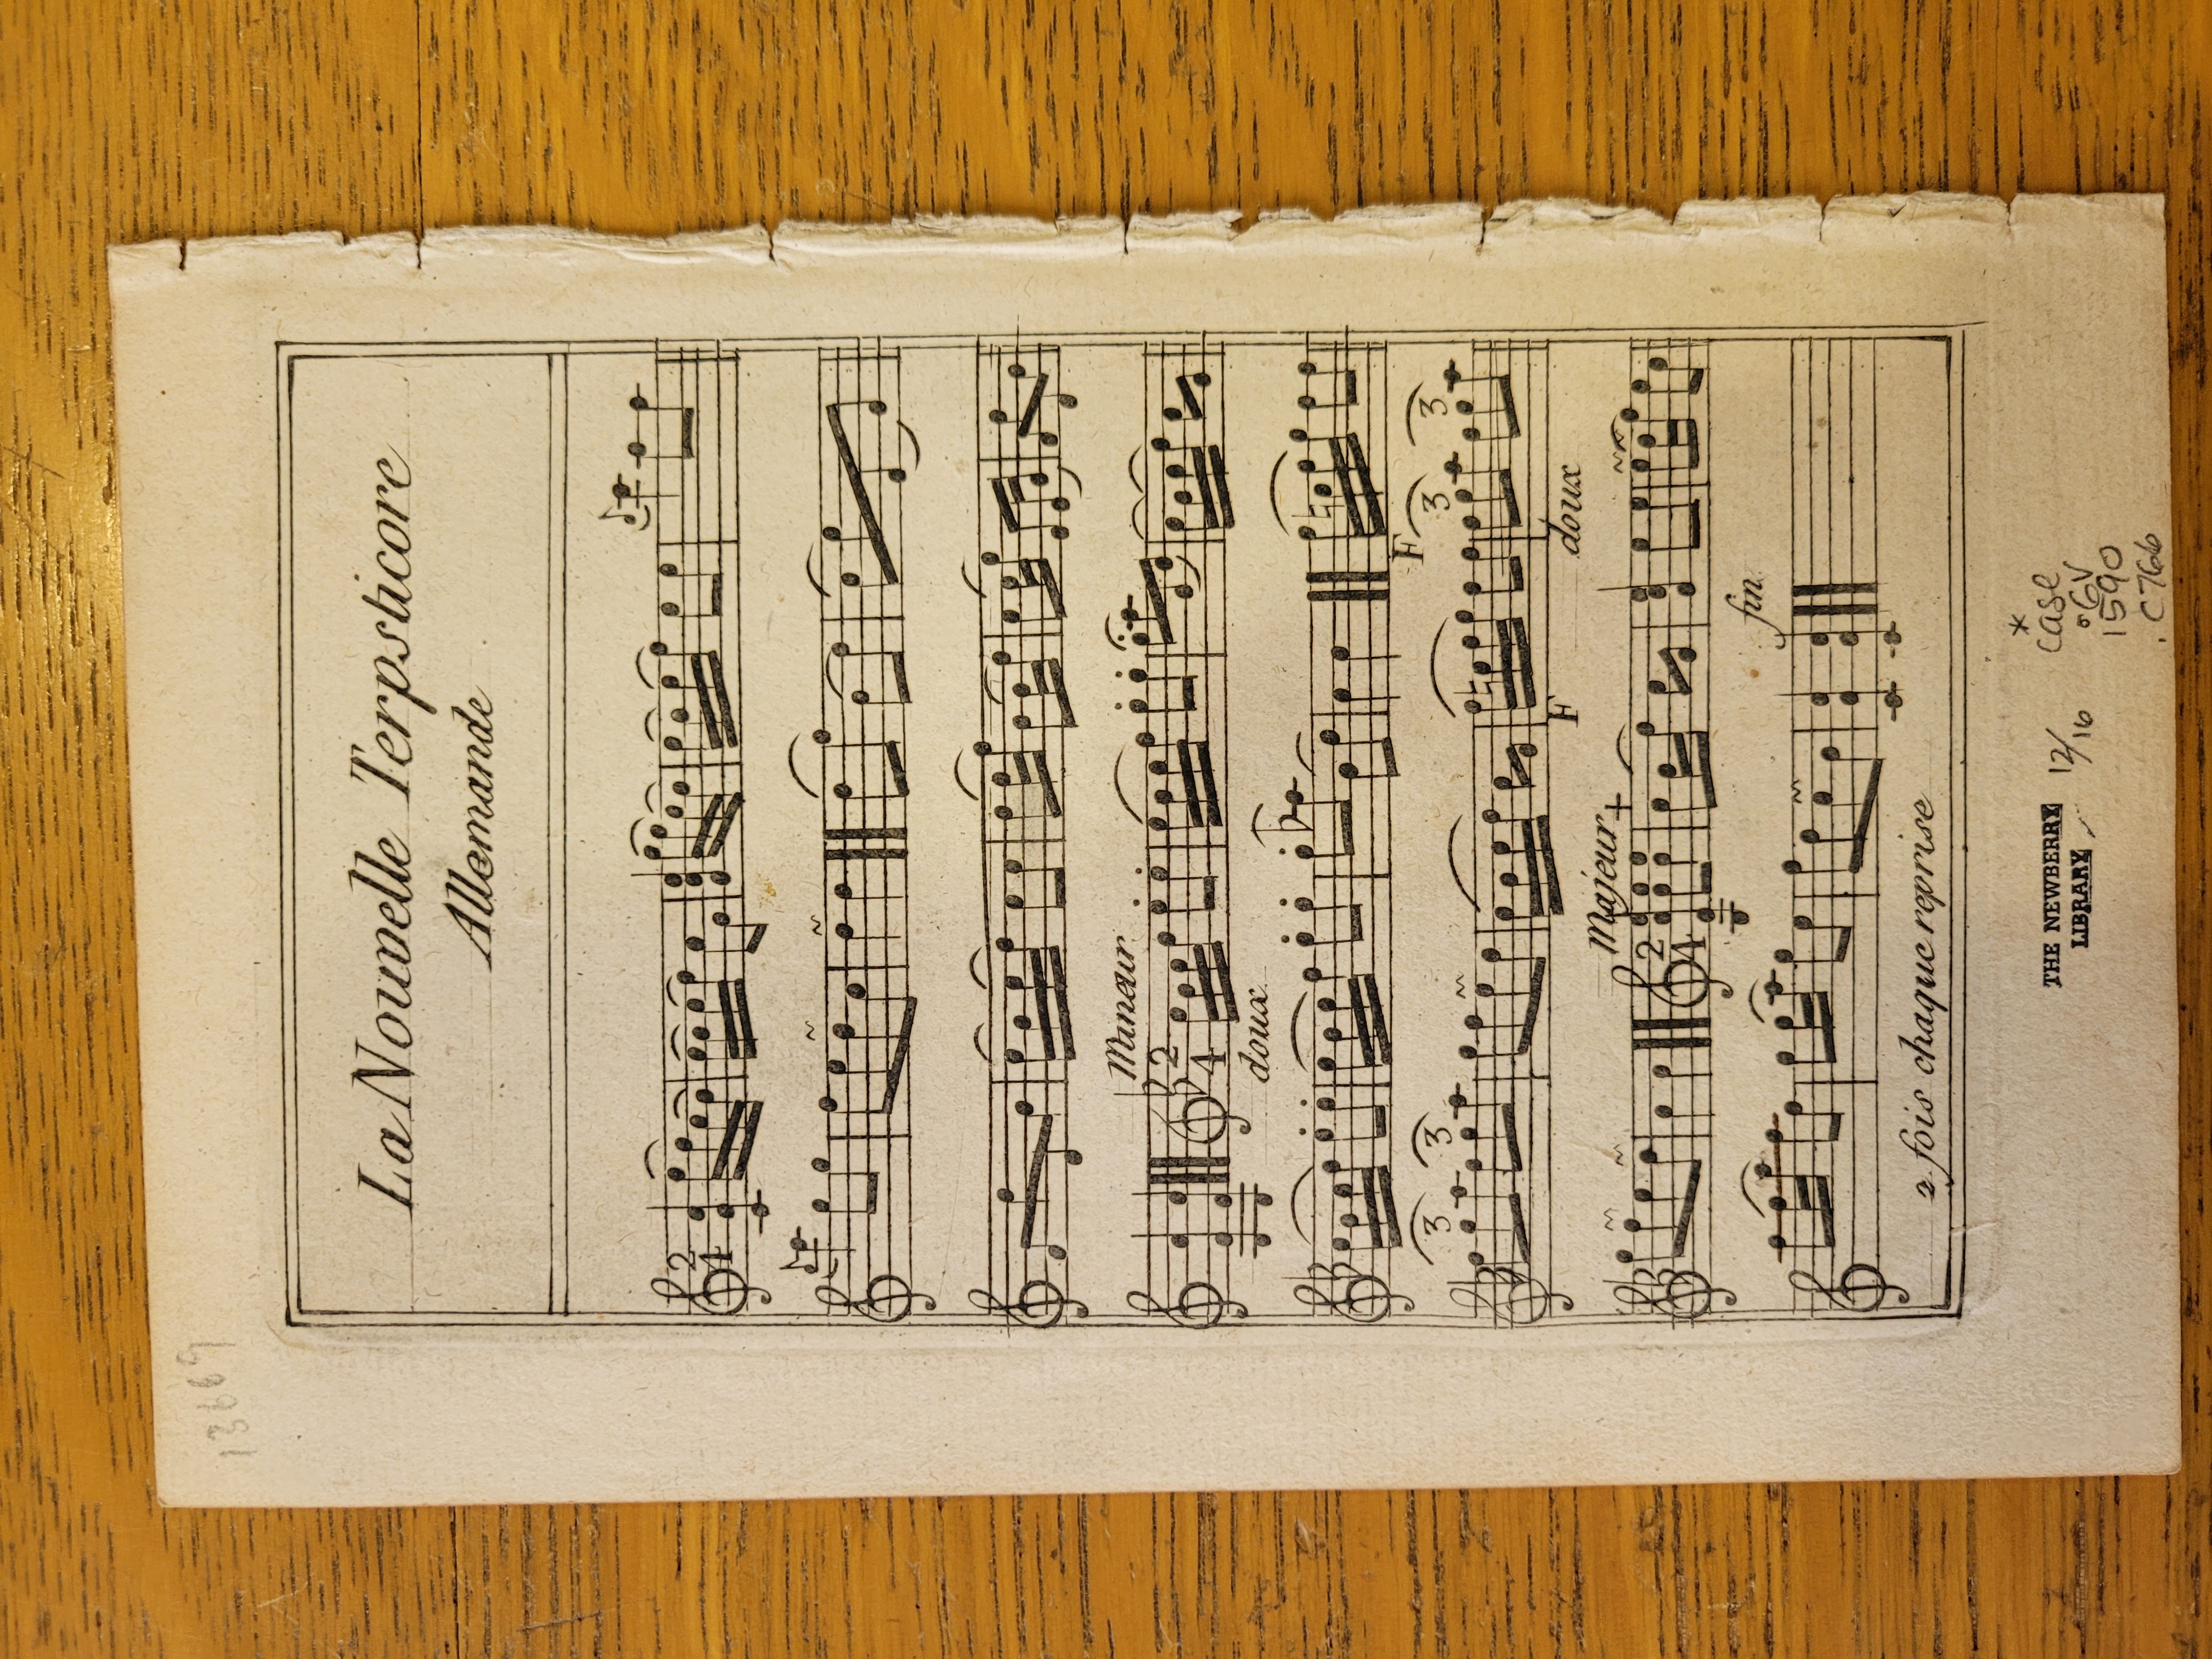 13669
La Nouvelle Terpsticore
Allemande
2
4
Mineur
2
4
doux
F
3 3 3 3
F doux
Majeur
2
4
fin
2 fois chaque reprise
THE NEWBERRY
LIBRARY
12/16
*
Case
oGV
1590
.C766